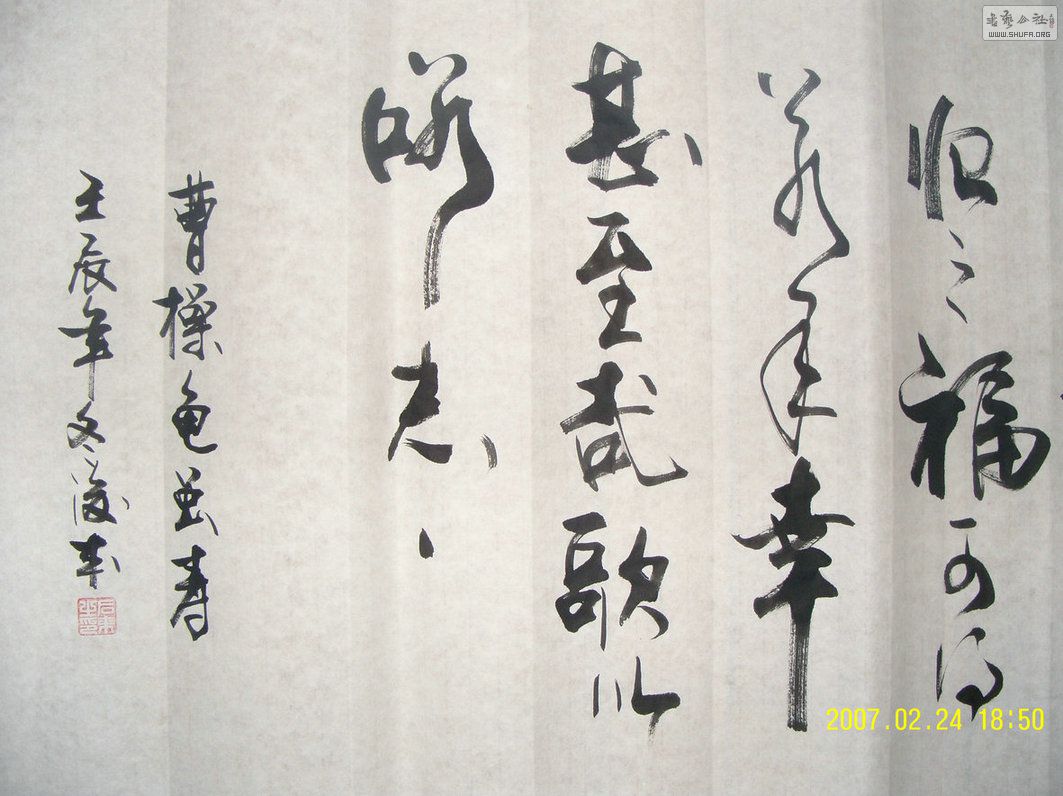 怡之福可得
永年幸
甚至哉歌以
咏志
曹操龟虽寿
壬辰年冬
書藝公社
WWW.SHUFA.ORG
2007.02.24 18:50